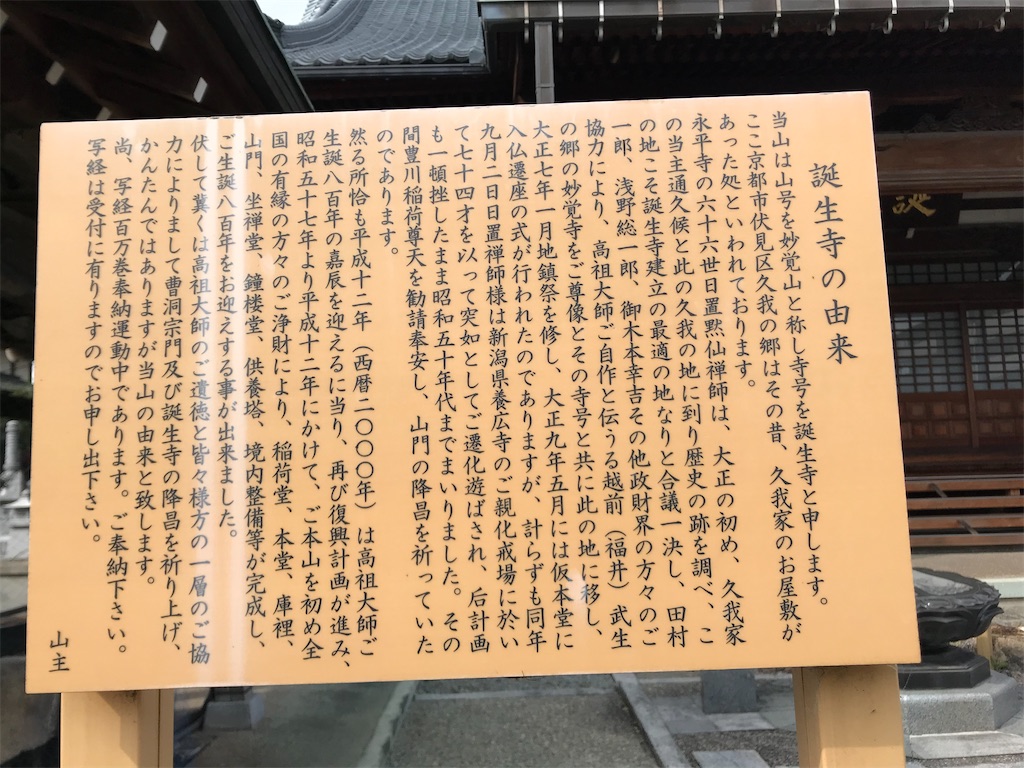 誕生寺の由来
当山は山号を妙覚山と称し寺号を誕生寺と申します。
ここ京都市伏見区久我の郷はその昔、久我家のお屋敷が
あった処といわれております。
永平寺の六十六世日置黙仙禅師は、大正の初め、久我家
の当主通久候と此の久我の地に到り歴史の跡を調べ、こ
の地こそ誕生寺建立の最適の地なりと合議一決し、田村
一郎、浅野総一郎、御木本幸吉その他政財界の方々のご
協力により、高祖大師ご自作と伝うる越前（福井）武生
の郷の妙覚寺をご尊像とその寺号と共に此の地に移し、
大正七年一月地鎮祭を修し、大正九年五月には仮本堂に
入仏遷座の式が行われたのでありますが、計らずも同年
九月二日日置禅師様は新潟県養広寺のご親化戒場に於い
て七十四才を以って突如としてご遷化遊ばされ、后計画
も一頓挫したまま昭和五十年代までまいりました。その
間豊川稲荷尊天を勧請奉安し、山門の降昌を祈っていた
のであります。
然る所恰も平成十二年（西暦二〇〇〇年）は高祖大師ご
生誕八百年の嘉辰を迎えるに当り、再び復興計画が進み、
昭和五十七年より平成十二年にかけて、ご本山を初め全
国の有縁の方々のご浄財により、稲荷堂、本堂、庫裡、
山門、坐禅堂、鐘楼堂、供養塔、境内整備等が完成し、
ご生誕八百年をお迎えする事が出来ました。
伏して冀くは高祖大師のご遺徳と皆々様方の一層のご協
力によりまして曹洞宗門及び誕生寺の降昌を祈り上げ、
かんたんではありますが当山の由来と致します。
尚、写経百万巻奉納運動中であります。ご奉納下さい。
写経は受付に有りますのでお申し出下さい。
山主
誕